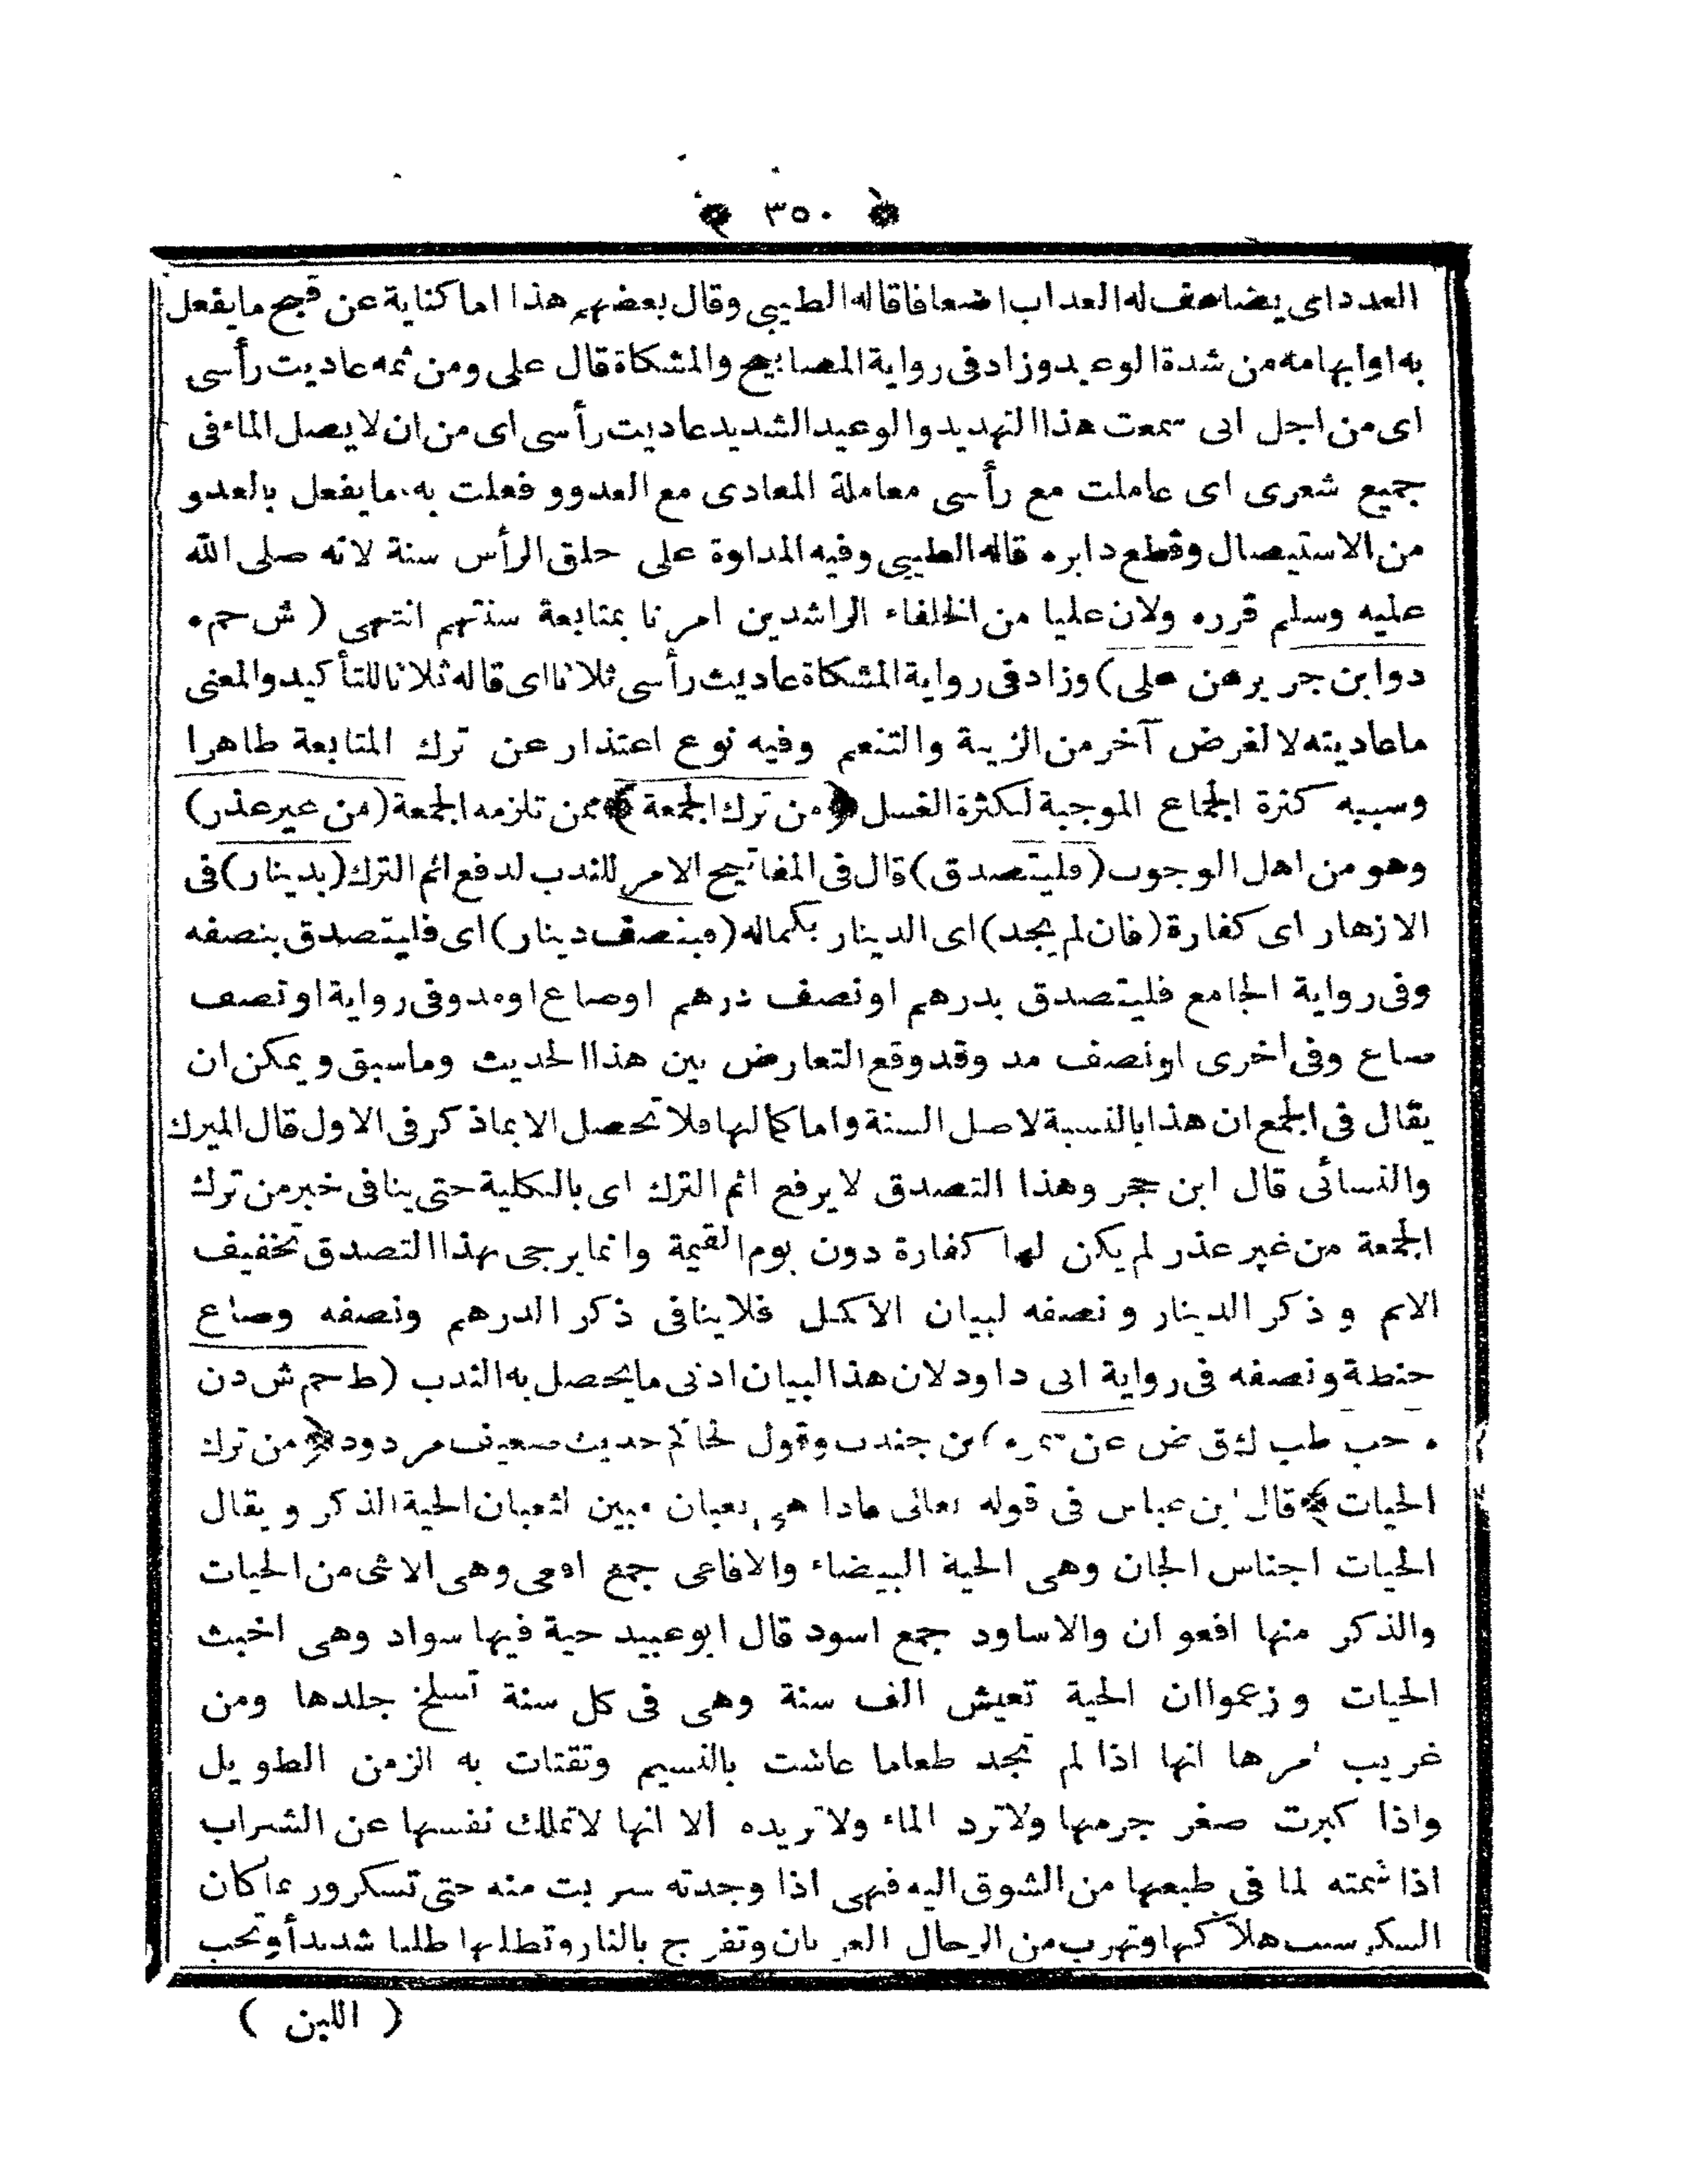 ﴿ ٣٥٠ ﴾
العدد اى يضاعف له العداب اضعافا قاله الطيبى وقال بعضهم هذا اما كناية عن قبح ما يفعل
به او ابهامه من شدة الوعيد وزاد فى رواية المصابيح والمشكاة قال على ومن ثمه عاديت رأسى
اى من اجل انى سمعت هذا التهديد والوعيد الشديد عاديت رأسى اى من ان لا يصل الماء فى
جميع شعرى اى عاملت مع رأسى معاملة المعادى مع العدو و فعلت به ما يفعل بالعدو
من الاستيصال وقطع دابره قاله الطيبى وفيه المداوة على حلق الرأس سنة لانه صلى الله
عليه وسلم قرره ولان عليا من الخلفاء الراشدين امرنا بمتابعة سنتهم انتهى ( ش حم ه
د وابن جرير عن على ) وزاد فى رواية المشكاة عاديت رأسى ثلاثا اى قاله ثلاثا للتأكيد والمعنى
ما عاديته لا لغرض آخر من الزينة والتنعم وفيه نوع اعتذار عن ترك المتابعة ظاهرا
وسببه كثرة الجماع الموجبة لكثرة الغسل ﴿ من ترك الجمعة ﴾ ممن تلزمه الجمعة ( من غير عذر )
وهو من اهل الوجوب ( فليتصدق ) قال فى المفاتيح الامر للندب لدفع اثم الترك ( بدينار ) فى
الازهار اى كفارة ( فان لم يجد ) اى الدينار بكماله ( فبنصف دينار ) اى فليتصدق بنصفه
وفى رواية الجامع فليتصدق بدرهم او نصف درهم او صاع او مد وفى رواية او نصف
صاع وفى اخرى او نصف مد وقد وقع التعارض بين هذا الحديث وما سبق و يمكن ان
يقال فى الجمع ان هذا بالنسبة لاصل السنة واما كمالها فلا تحصل الا بما ذكر فى الاول قال الميرك
والنسائى قال ابن حجر وهذا التصدق لا يرفع اثم الترك اى بالكلية حتى ينافى خبر من ترك
الجمعة من غير عذر لم يكن لها كفارة دون يوم القيمة وانما يرجى بهذا التصدق تخفيف
الاثم و ذكر الدينار و نصفه لبيان الاكمل فلا ينافى ذكر الدرهم ونصفه وصاع
حنطة ونصفه فى رواية ابى داود لان هذا البيان ادنى ما يحصل به الندب ( ط حم ش د ن
ه حب طب ك ق ض عن سمرة ) بن جندب وقول الحاكم حديث ضعيف مردود ﴿ من ترك
الحيات ﴾ قال ابن عباس فى قوله تعالى فاذا هى ثعبان مبين الثعبان الحية الذكر و يقال
الحيات اجناس الجان وهى الحية البيضاء والافاعى جمع افعى وهى الانثى من الحيات
والذكر منها افعوان والاساود جمع اسود قال ابو عبيد حية فيها سواد وهى اخبث
الحيات و زعموا ان الحية تعيش الف سنة وهى فى كل سنة تسلخ جلدها ومن
غريب امرها انها اذا لم تجد طعاما عاشت بالنسيم وتقتات به الزمن الطويل
واذا كبرت صغر جرمها ولا ترد الماء ولا تريده الا انها لا تملك نفسها عن الشراب
اذا شمته لما فى طبعها من الشوق اليه فهى اذا وجدته سربت منه حتى تسكر ور بما كان
السكر سبب هلاكها وتهرب من الرجال العريان وتفرح بالنار وتطلبها طلبا شديدا وتحب
( اللبن )